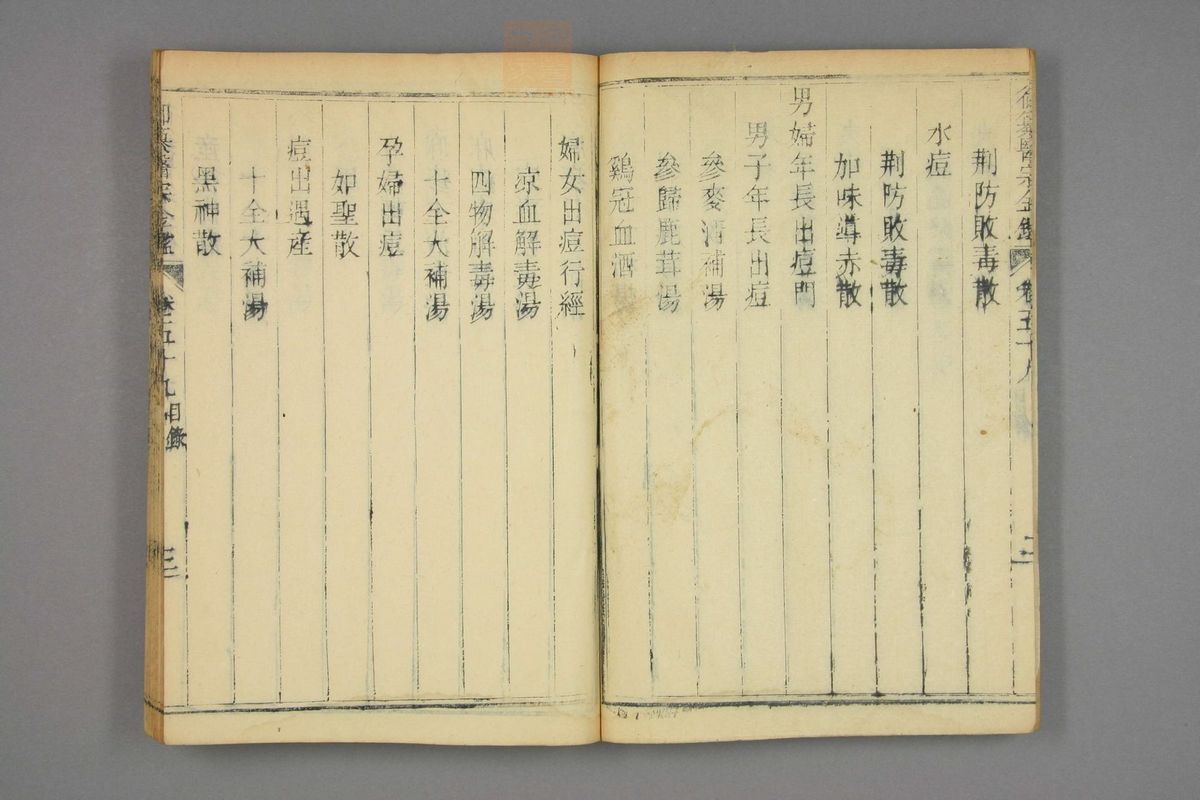 御纂醫宗金鑑 卷五十九
荆防敗毒散
水痘
荆防敗毒散
加味導赤散
男婦年長出痘門
男子年長出痘
參麥清補湯
參歸鹿茸湯
鷄冠血酒
婦女出痘行經
凉血解毒湯
四物解毒湯
十全大補湯
孕婦出痘
如聖散
痘出遇産
十全大補湯
黑神散
御纂醫宗金鑑 卷五十九 目録 三